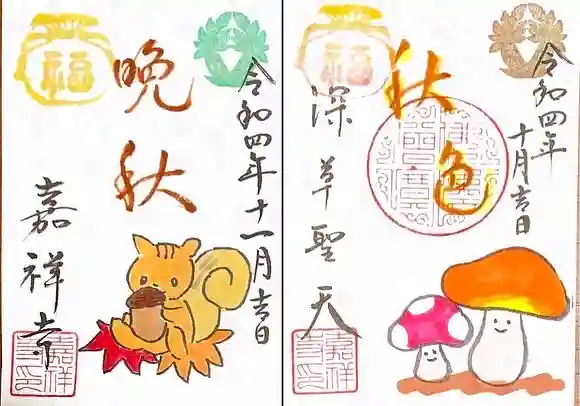 令和四年十一月吉日
福
晩秋
嘉祥寺
嘉祥寺之印
令和四年
十月吉日
福
秋色
深草聖天
嘉祥寺之印